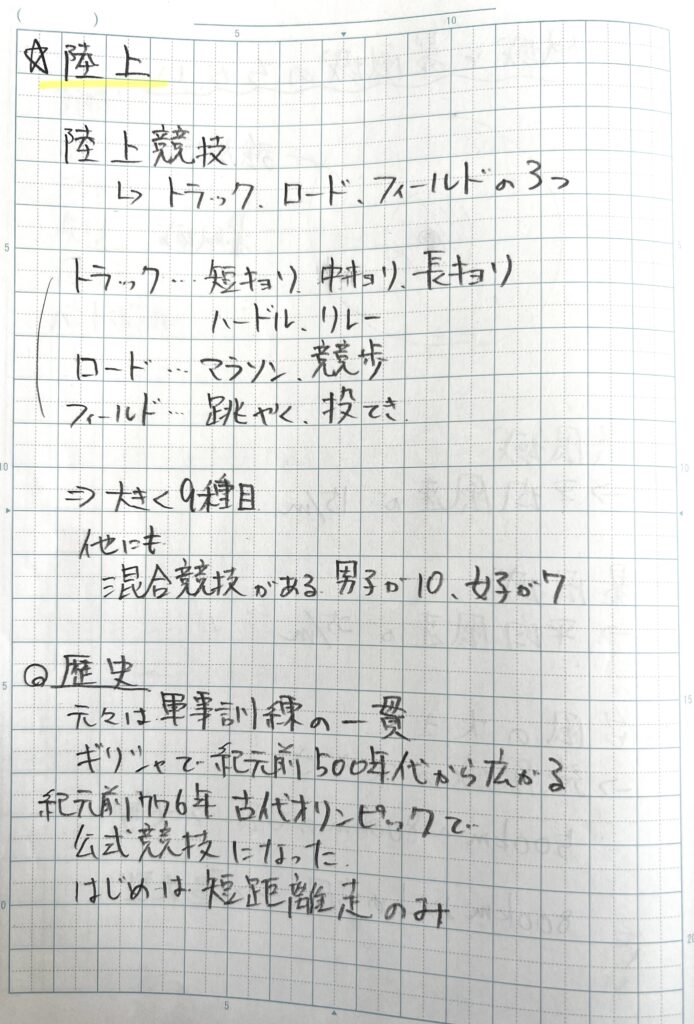 ☆ 陸上
陸上競技
↳ トラック、ロード、フィールドの3つ
トラック… 短キョリ、中キョリ、長キョリ
ハードル、リレー
ロード… マラソン、競歩
フィールド… 跳やく、投てき
⇒ 大きく9種目
他にも
混合競技がある 男子が10、女子が7
◎ 歴史
元々は軍事訓練の一貫
ギリシャで紀元前500年代から広がる
紀元前776年 古代オリンピックで
公式競技になった
はじめは短距離走のみ